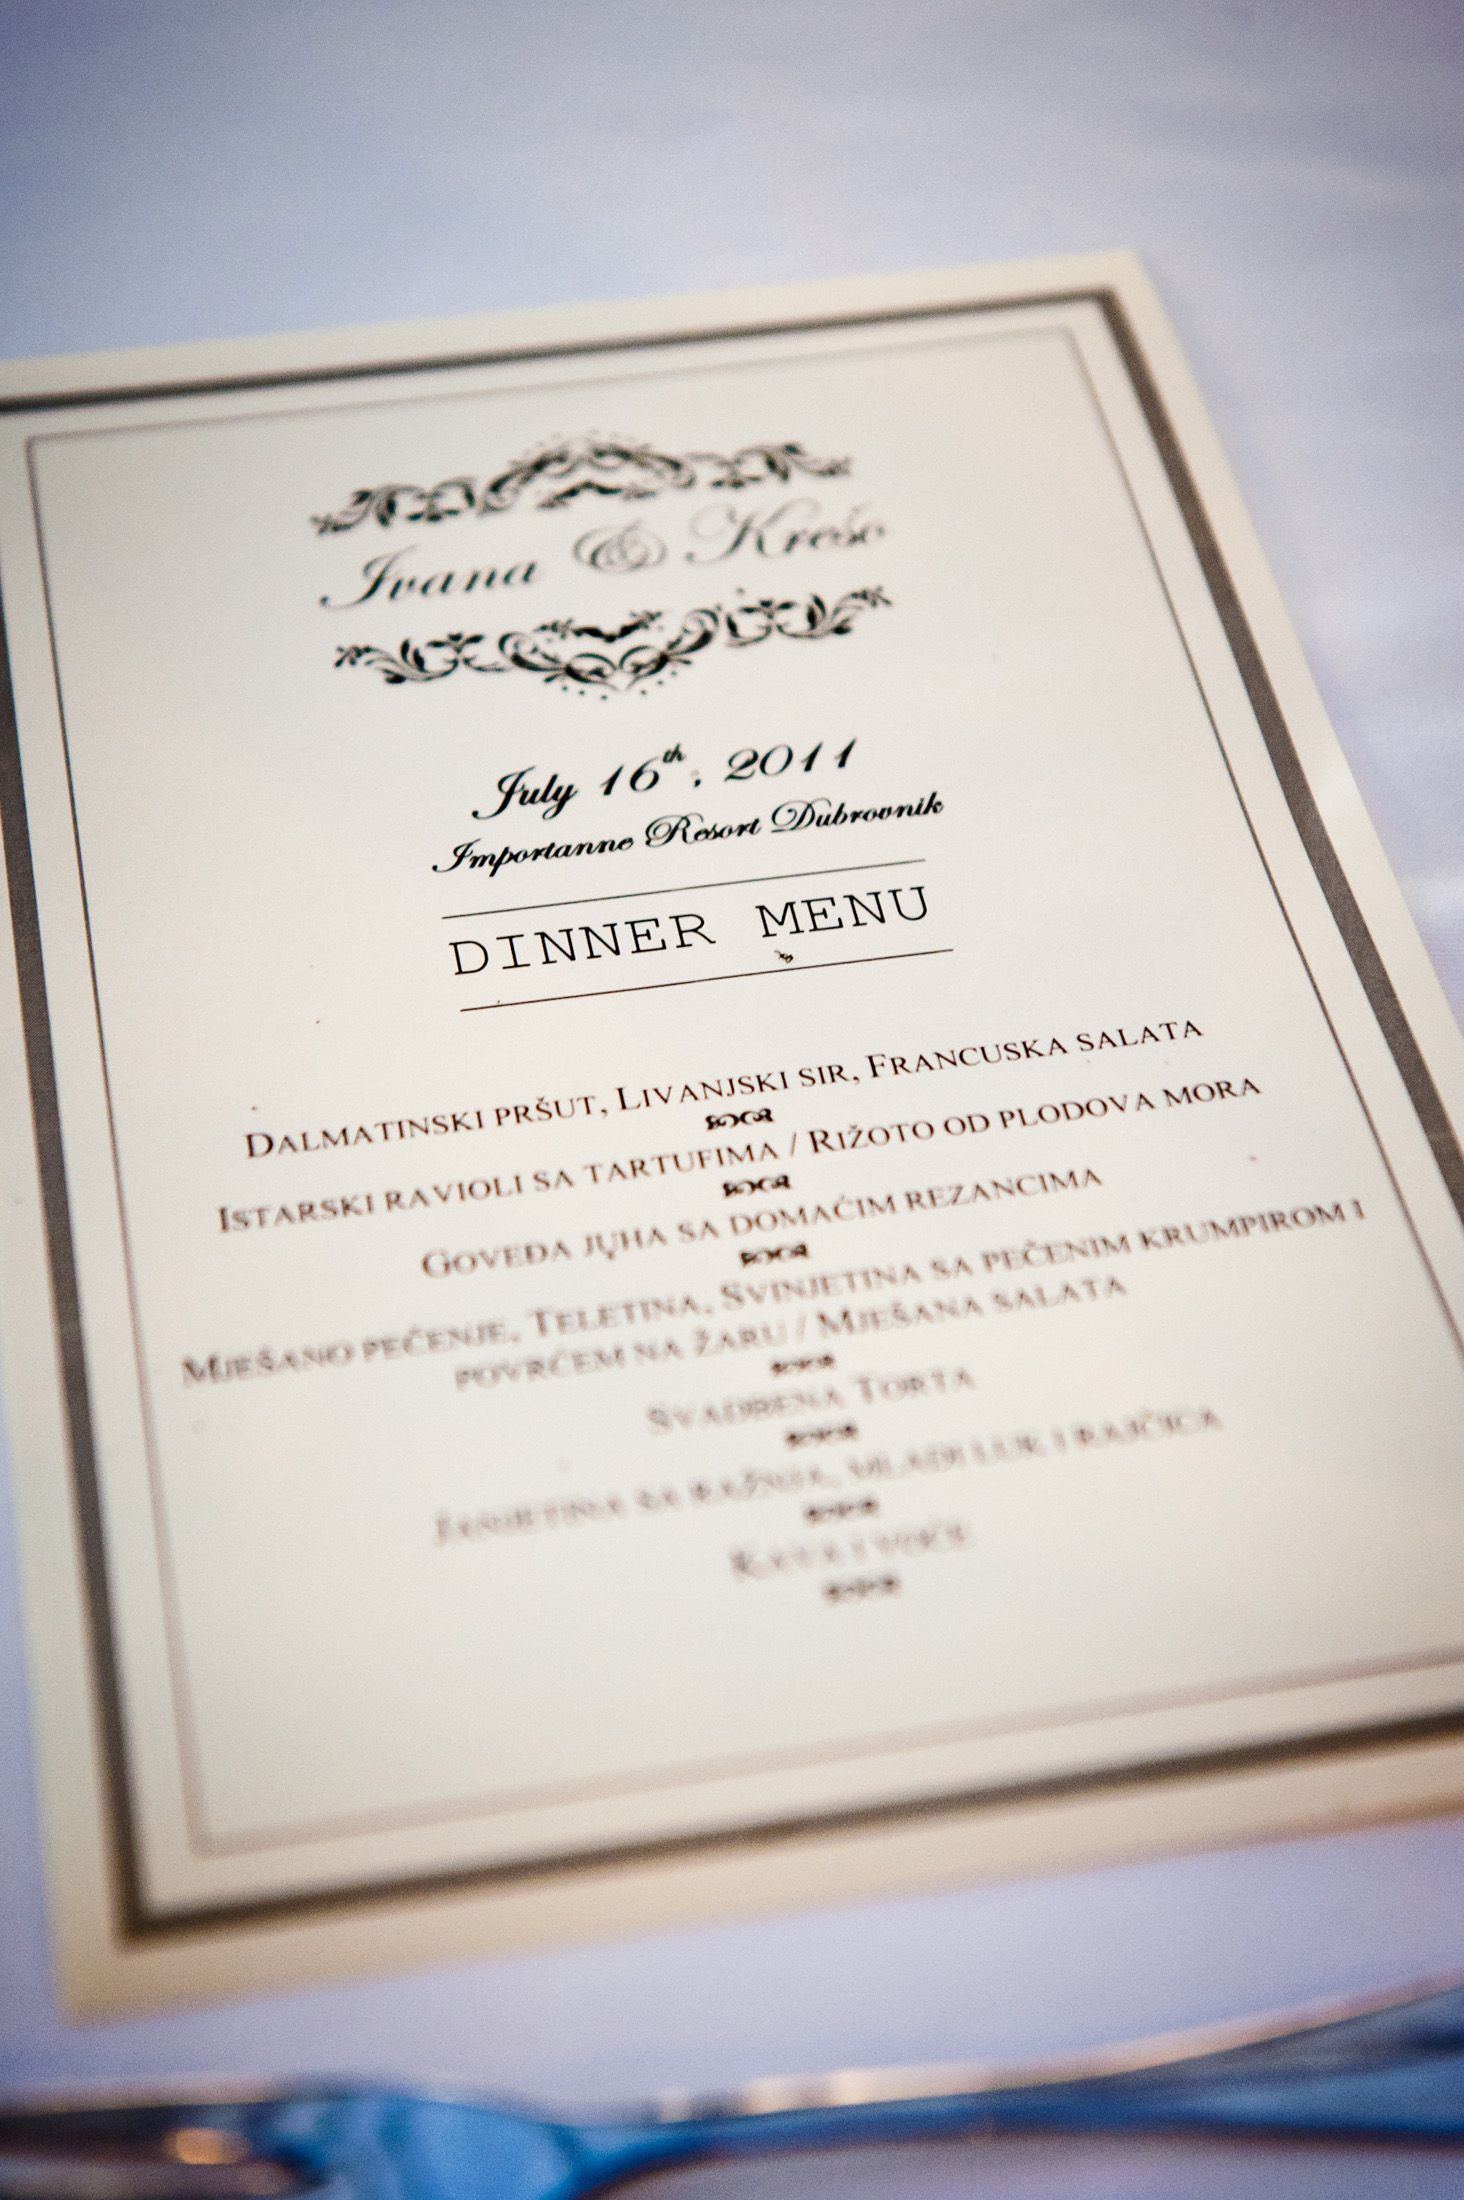 Ivana & Krešo
July 16th, 2011
Importanne Resort Dubrovnik
DINNER MENU
DALMATINSKI PRŠUT, LIVANJSKI SIR, FRANCUSKA SALATA
ISTARSKI RAVIOLI SA TARTUFIMA / RIŽOTO OD PLODOVA MORA
GOVEĐA JUHA SA DOMAĆIM REZANCIMA
MJEŠANO PEČENJE, TELETINA, SVINJETINA SA PEČENIM KRUMPIROM I
POVRĆEM NA ŽARU / MJEŠANA SALATA
SVADBENA TORTA
JANJETINA SA RAŽNJA, MLADI LUK I RAJČICA
KAVA I VOĆE